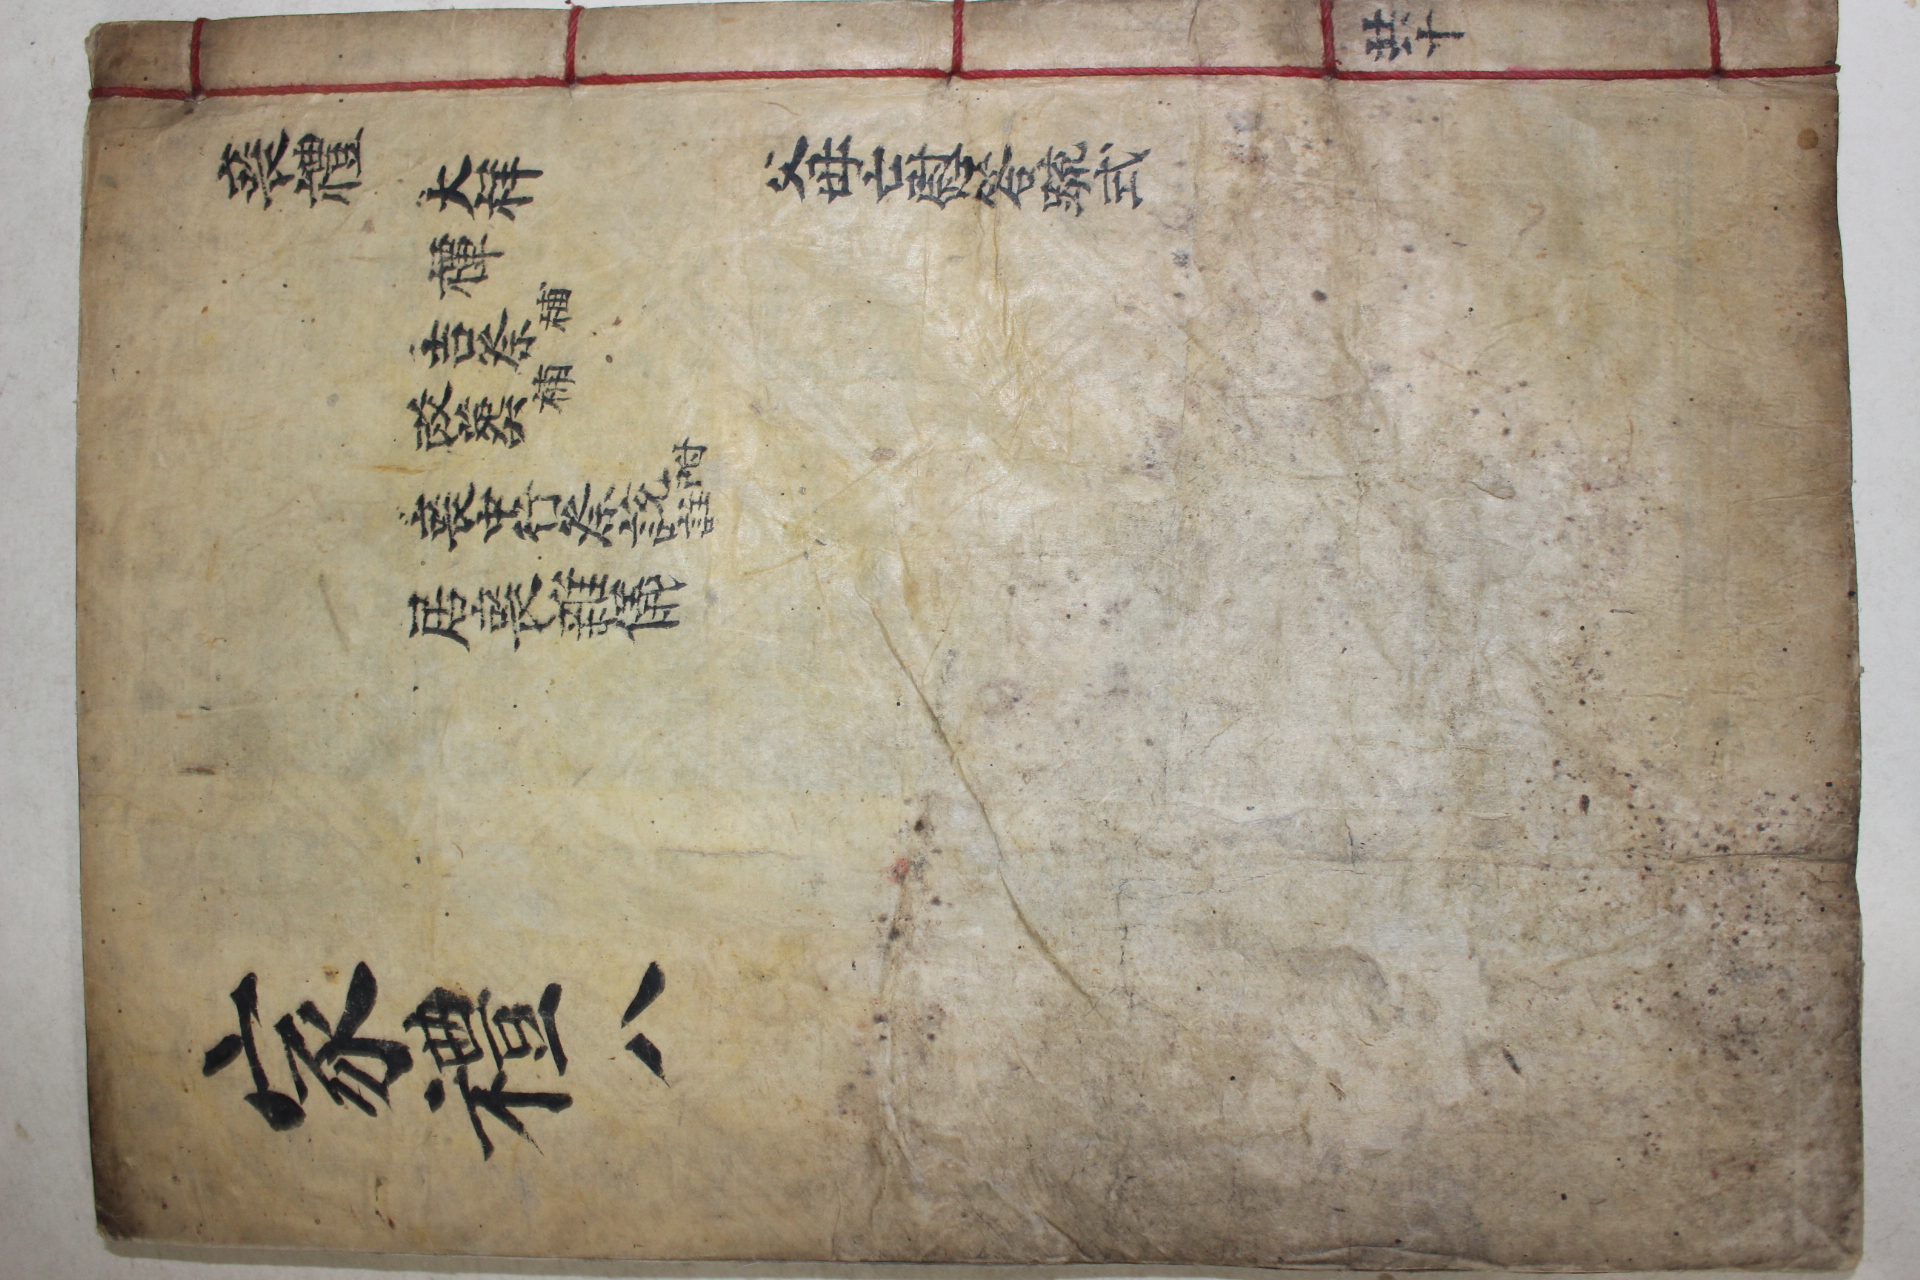 喪禮
大祥
禫
吉祭 補
改葬 補
喪中行祭說 附註
居喪雜儀
父母亡慰答疏式
家禮 八
共十